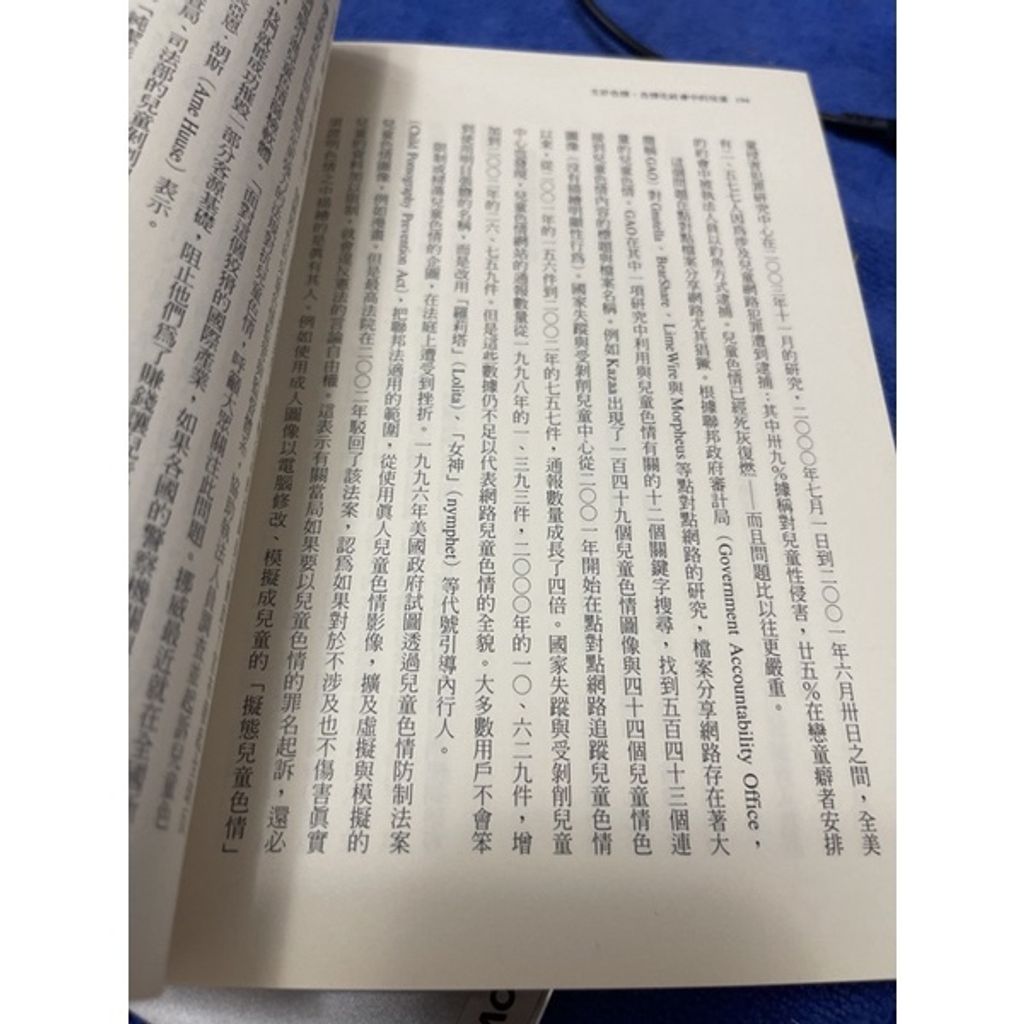 童侵害犯罪研究中心在二〇〇三年十一月的研究，二〇〇〇年七月一日到二〇〇一年六月卅日之間，全美
有二、五七七人因為涉及兒童網路犯罪遭到逮捕：其中卅九%據稱對兒童性侵害，廿五%在戀童癖者安排
的約會中被執法人員以釣魚方式逮捕。兒童色情已經死灰復燃——而且問題比以往更嚴重。
這個問題在點對點檔案分享網路尤其猖獗。根據聯邦政府審計局（Government Accountability Office，
簡稱 GAO）對 Gnutella、BearShare、LimeWire 與 Morpheus 等點對點網路的研究，檔案分享網路存在著大
量的兒童色情。GAO 在其中一項研究中利用與兒童色情有關的十二個關鍵字搜尋，找到五百四十三個連
接到兒童色情內容的標題與檔案名稱。例如 Kazaa 出現了一百四十九個兒童色情圖像與四十四個兒童情色
圖像（沒有描繪明顯性行為）。國家失蹤與受剝削兒童中心從二〇〇一年開始在點對點網路追蹤兒童色情
以來，從二〇〇一年的一五六件到二〇〇二年的七五七件，通報數量成長了四倍。國家失蹤與受剝削兒童
中心還發現，兒童色情網站的通報數量從一九九八年的一、三九三件，二〇〇〇年的一〇、六二九件，增
加到二〇〇二年的二六、七五九件。但是這些數據仍不足以代表網路兒童色情的全貌。大多數用戶不會笨
到使用明目張膽的名稱，而是改用「羅莉塔」（Lolita）、「女神」（nymphet）等代號引導內行人。
限制或掃蕩兒童色情的企圖，在法庭上遭受到挫折。一九九六年美國政府試圖透過兒童色情防制法案
（Child Pornography Prevention Act），把聯邦法適用的範圍，從使用真人兒童色情影像，擴及虛擬與模擬的
兒童色情圖像，例如漫畫。但是最高法院在二〇〇二年駁回了該法案，認為如果對於不涉及也不傷害真實
兒童的資料加以限制，就會違反憲法的言論自由權。這表示有關當局如果要以兒童色情的罪名起訴，還必
須證明色情之中描繪的是真有其人。例如使用成人圖像以電腦修改、模擬成兒童的「擬態兒童色情」
我們就能成功摧毀一部分客源基礎，阻止他們為了賺錢
胡斯（Arne Huuse）表示。
司法部的兒童剝削